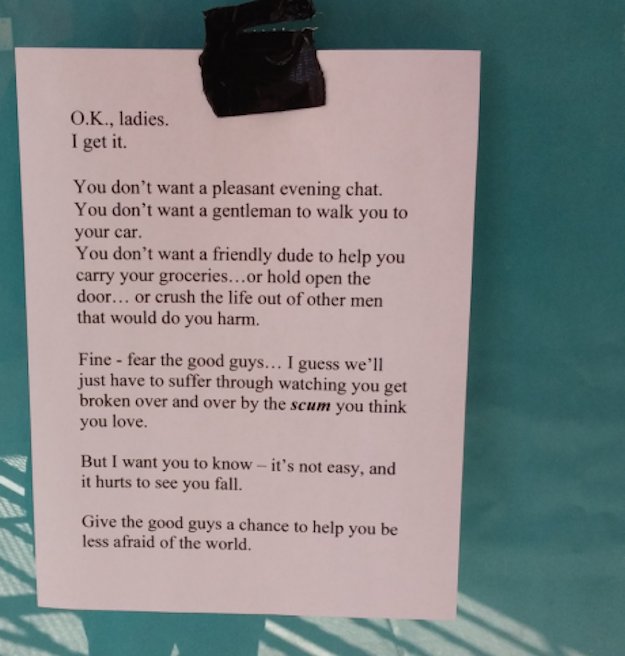 O.K., ladies.
I get it.
You don't want a pleasant evening chat.
You don't want a gentleman to walk you to
your car.
You don't want a friendly dude to help you
carry your groceries…or hold open the
door… or crush the life out of other men
that would do you harm.
Fine - fear the good guys… I guess we'll
just have to suffer through watching you get
broken over and over by the scum you think
you love.
But I want you to know – it's not easy, and
it hurts to see you fall.
Give the good guys a chance to help you be
less afraid of the world.